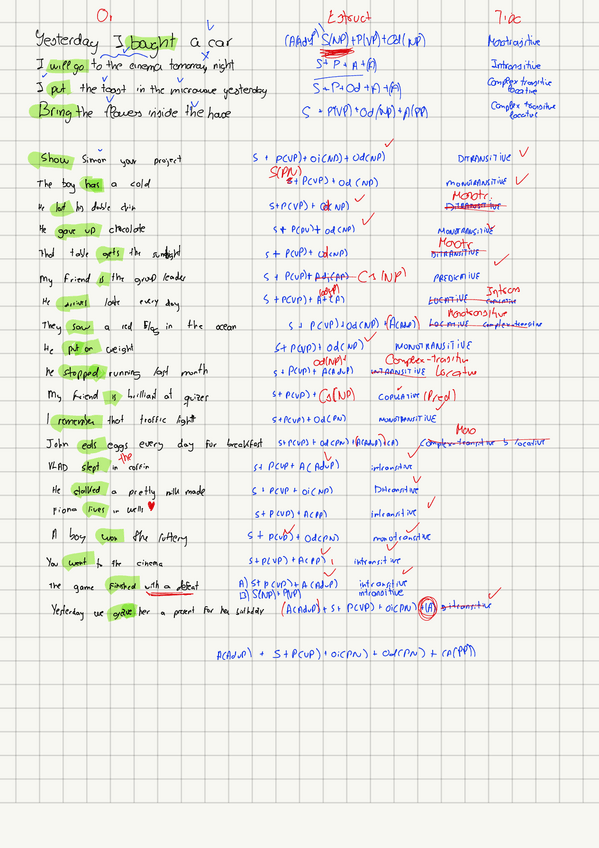 O: Estruct Tipo
Yesterday I bought a car (A(AdvP) S(NP)+P(VP)+Od(NP) Monotrasitive
I will go to the cinema tomorrow night S + P + A + (A) Intransitive
I put the toast in the microwave yesterday S+P+Od+A+(A) Complex transitive locative
Bring the flowers inside the house S + P(VP) + Od(NP) + A(PP) Complex transitive locative
Show Simon your project S + P(VP)+Oi(NP)+Od(NP) DITRANSITIVE
The boy has a cold S(PN) S+P(VP)+Od(NP) MONOTRANSITIVE
He S+P(VP)+Od(NP) Monotr. DITRANSITIVE
He gave up chocolate S+P(VP)+Od(NP) MONOTRANSITIVE
That table gets the sunlight S+P(VP)+Od(NP) Monotr DITRANSITIVE
My friend is the group leader S+P(VP)+Ad,(AA) Cs(NP) PREDICATIVE
He arrives late every day S+P(VP)+A+(A) Intran LOCATIVE copulative
They saw a red flag in the ocean S+P(VP)+Od(NP)+(A(AdvP)) Monotransitive LOCATIVE complex-transitive
He put on weight S+P(VP)+Od(NP) MONOTRANSITIVE
He stopped running last month S+P(VP)+A(AdvP) Od(NP)+ Complex-transitiv INTRANSITIVE Locative
My friend is brilliant at quizes S+P(VP)+Cs(NP) COPULATIVE (Pred)
I remember that traffic light S+P(VP)+Od(PN) MONOTRANSITIVE
John eats eggs every day for breakfast S+P(VP)+Od(PN)+(A(AdvP))+(A) Mono Complex-transitive locative
VLAD slept in the coffin S+P(VP+A(AdvP) intransitive
He stalked a pretty milk made S+P(VP+Oi(NP) Ditransitive
Fiona lives in wells S+P(VP)+A(PP) intransitive
A boy won the lottery S+P(VP)+Od(PN) monotransitive
You went to the cinema S+P(VP)+A(PP) intransitive
The game finished with a defeat A) S+P(VP)+A(AdvP) intransitive
B) S(NP)+P(VP) intransitive
Yesterday we gave her a present for her birthday (A(AdvP)+S+P(VP)+Oi(PN)+(A) ditransitive
A(AdvP) + S+P(VP)+Oi(PN)+Od(PN)+(A(PP))